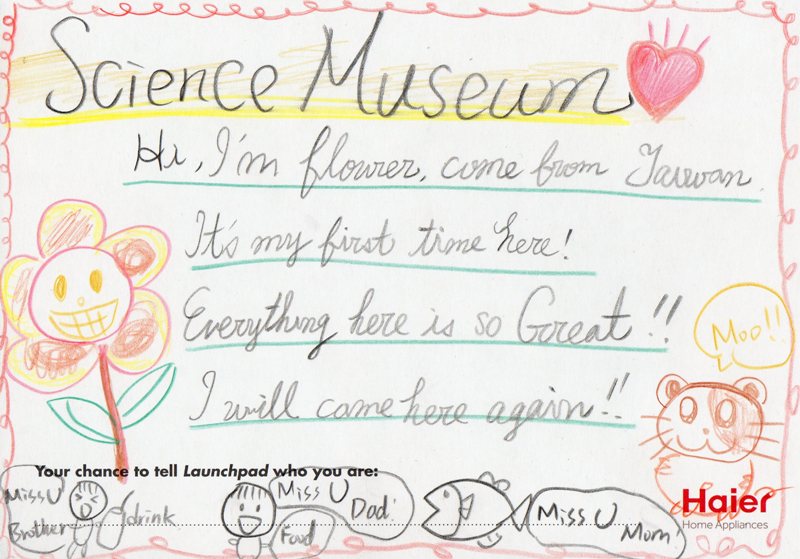 Science Museum
Hi, I'm flower, come from Taiwan.
It's my first time here!
Everything here is so Great!!
Moo!!
I will come here again!!
Your chance to tell Launchpad who you are:
Miss U
Brother
drink
Miss U
Dad!
Food
Miss U
Mom!
Haier
Home Appliances